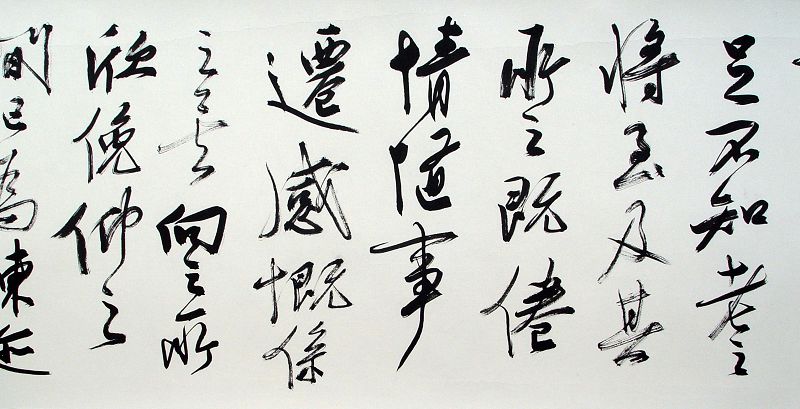 足不知老之
將至及其
所之既倦
情隨事
遷感慨係
之矣向之所
欣俛仰之
間已為陳迹